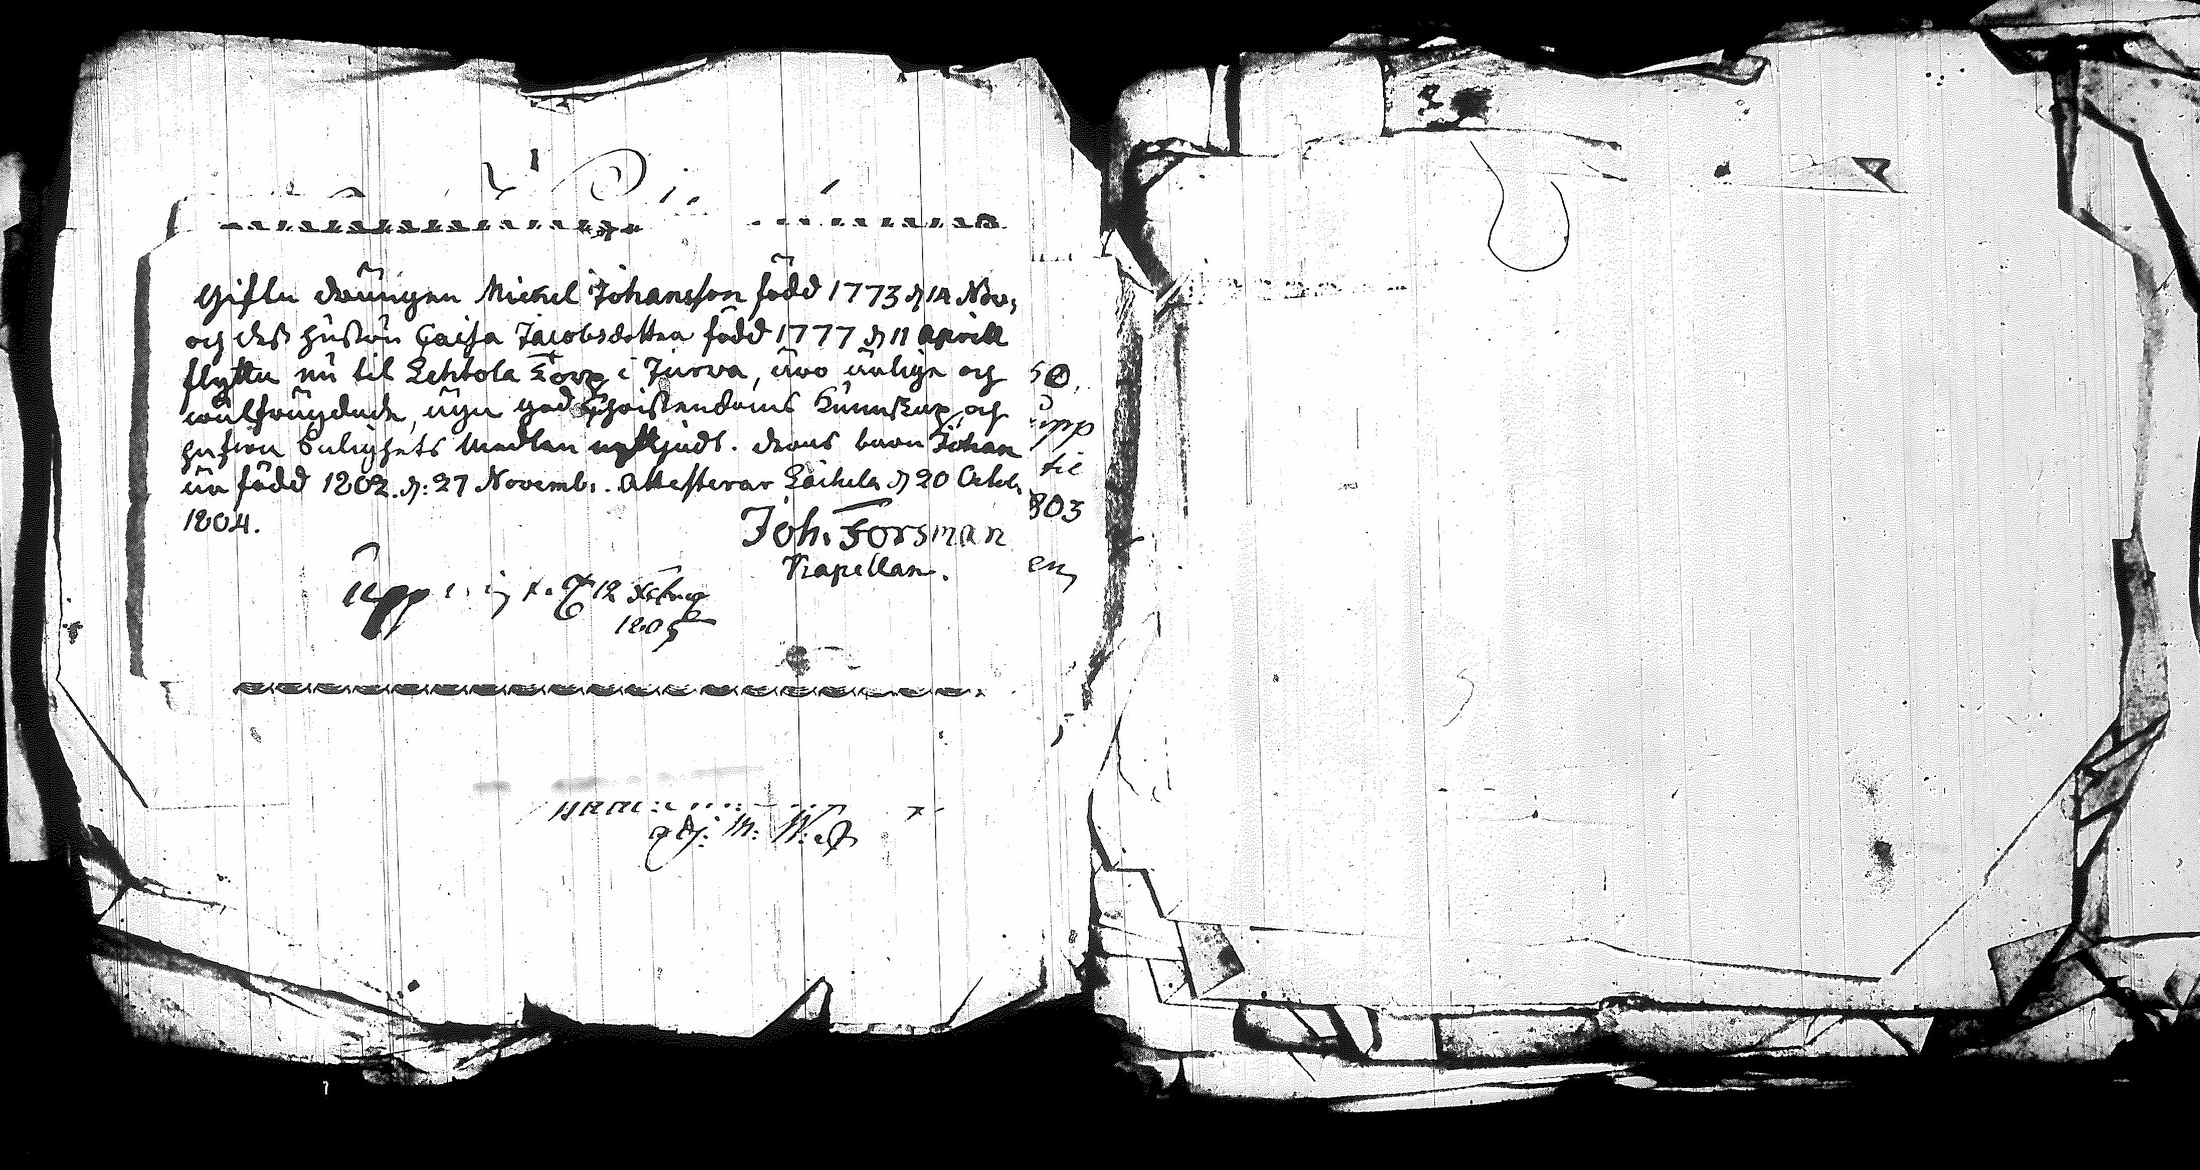 Gifte drängen Michel Johansson född 1773 d 14 Nov:
och dess hustru Caisa Jacobsdotter född 1777 d 11 Aprill
flytta nu til Lehtola Torp i Jurva, äro ärlige och
wälfrägdade, äga god Christendoms Kunskap, och
hafva Salighets Medlen nyttjadt. deras barn Johan
är född 1802. d: 27 Novemb:. Attesterar Laihela d 20 Octob.
1804.
Joh. Forsman
Kapellan.
Upp 12 Febru
1805
50.
upp
til
803
en
adj. M.